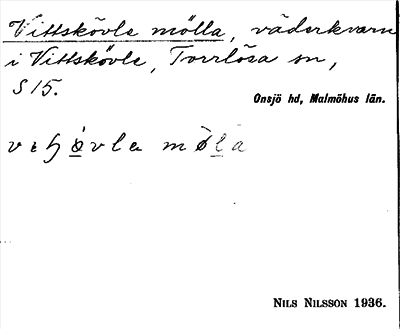 Vittskövle mölla, väderkvarn
i Vittskövle, Torrlösa sn,
S 15.
Onsjö hd, Malmöhus län.
NILS NILSSON 1936.